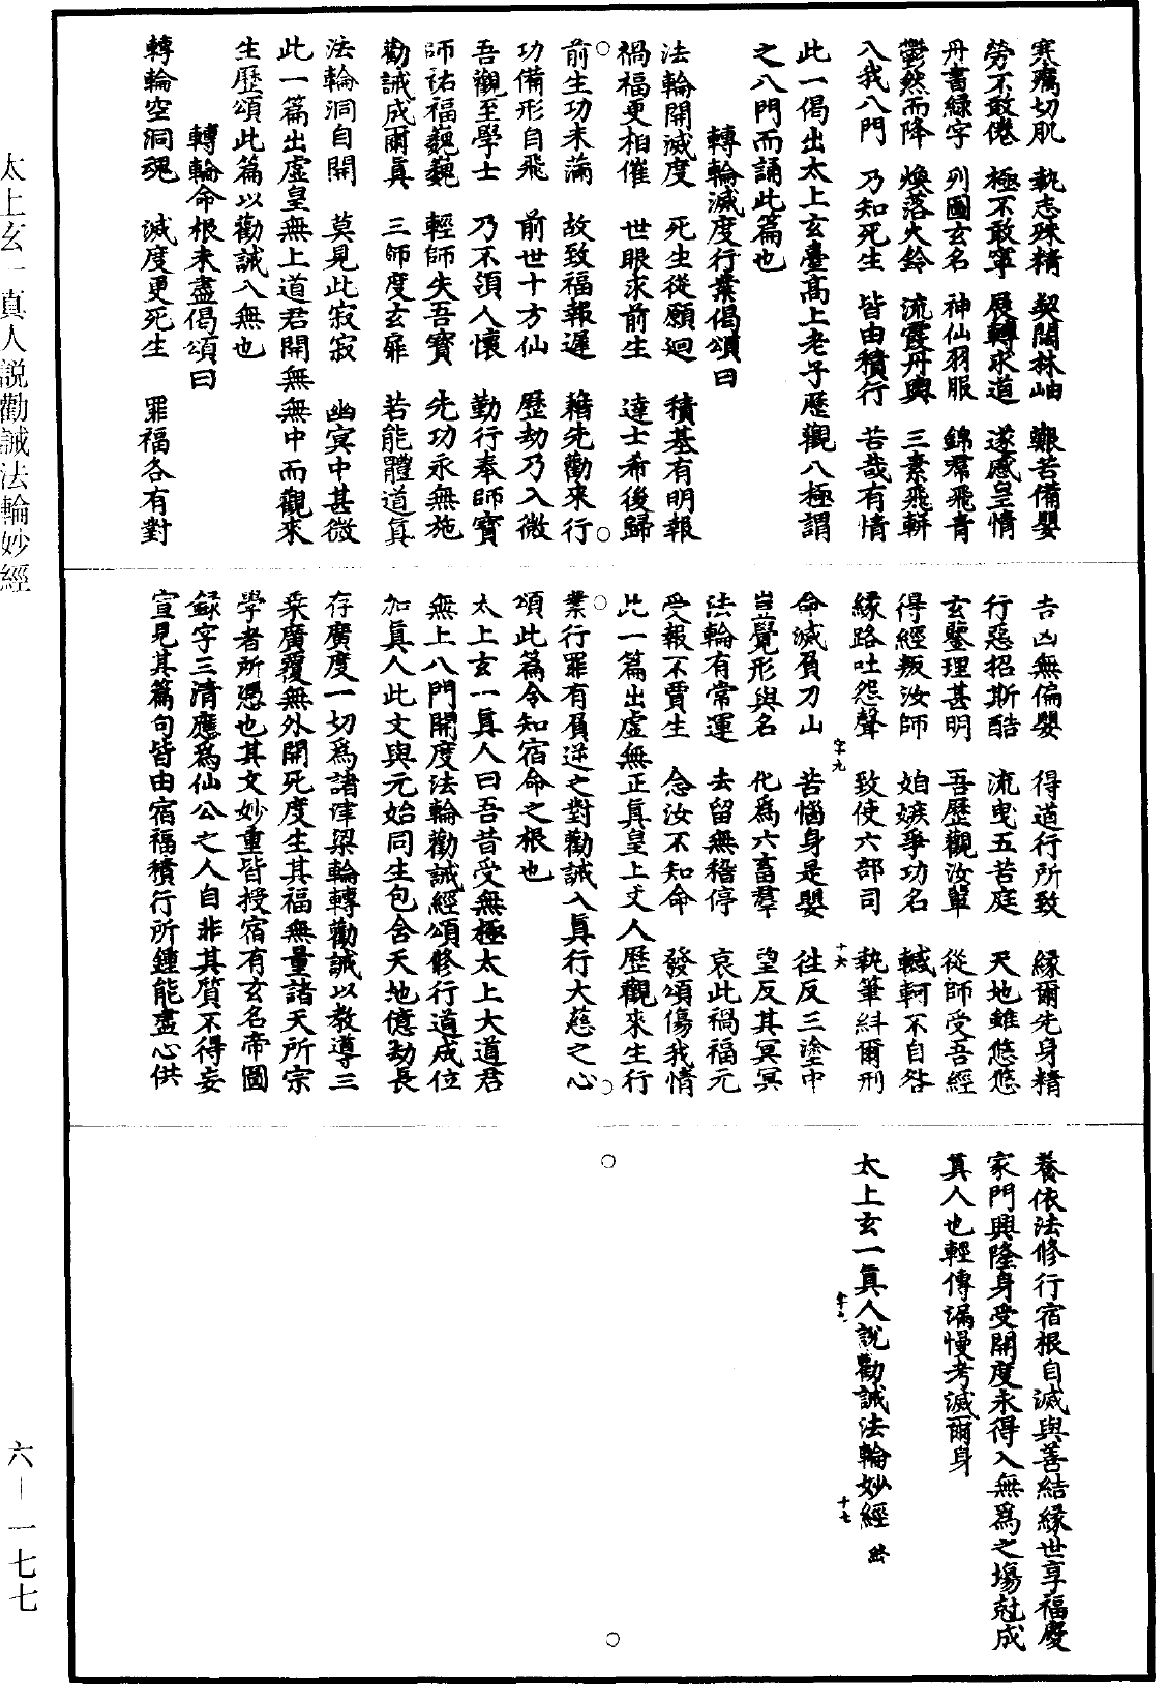 寒癘切肌　執志殊精　契闊林岫　艱苦備嬰
勞不敢倦　極不敢寧　展轉求道　遂感皇情
丹書綠字　列圖玄名　神仙羽服　錦帬飛青
鬱然而降　煥落火鈴　流霞丹輿　三素飛軿
入我八門　乃知死生　皆由積行　苦哉有情
此一偈出太上玄臺高上老子歷觀八極謂
之八門而誦此篇也
轉輪滅度行業偈頌曰
法輪開滅度　死生從願迴　積基有明報
禍福更相催　世眼求前生　達士希後歸
前生功未滿　故致福報遲　藉先勸來行
功備形自飛　前世十方仙　歷劫乃入微
吾觀至學士　乃不須人懷　勤行奉師寶
師祐福巍巍　輕師失吾寶　先功永無施
勸誡成爾真　三師度玄扉　若能體道真
法輪洞自開　莫見此寂寂　幽冥中甚微
此一篇出虛皇無上道君開無無中而觀來
生歷頌此篇以勸誡入無也
轉輪命根未盡偈頌曰
轉輪空洞魂　滅度更死生　罪福各有對
吉凶無偏嬰　得道行所致　緣爾先身精
行惡招斯酷　流曳五苦庭　天地雖悠悠
玄鑒理甚明　吾歷觀汝軰　從師受吾經
得經叛汝師　妲嫉爭功名　轗軻不自咎
緣路吐怨聲　致使六部司　執筆糾爾刑
命滅負刀山　苦惱身是嬰　往反三塗中
豈覺形與名　化為六畜羣　望反其冥冥
法輪有常運　去留無稽停　哀此禍福元
受報不賈生　念汝不知命　發頌傷我情
此一篇出虛無正真皇上丈人歷觀來生行
業行罪有負逆之對勸誡入真行大慈之心
頌此篇令知宿命之根也
太上玄一真人曰吾昔受無極太上大道君
無上八門開度法輪勸誡經頌修行道成位
加真人此文與元始同生包含天地億劫長
存廣度一切為諸津梁輪轉勸誡以教導三
乘廣覆無外開死度生其福無量諸天所宗
學者所憑也其文妙重皆授宿有玄名帝圖
錄字三清應為仙公之人自非其質不得妄
宣見其篇句皆由宿福積行所鍾能盡心供
養依法修行宿根自滅與善結緣世享福慶
家門興隆身受開度永得入無為之場尅成
真人也輕傳漏慢考滅爾身
太上玄一真人說勸誡法輪妙經
字九
十六
十七
太上玄一真人説勸誡法輪妙經
六—一七七